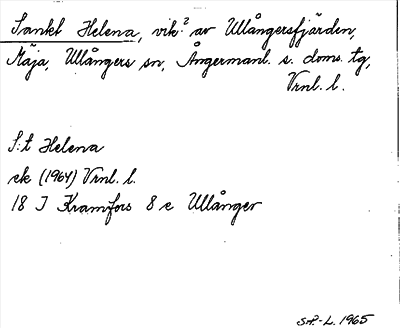 Sankt Helena, vik² av Ullångersfjärden,
Mäja, Ullångers sn, Ångermanl. s. doms. tg,
Vrnl. l.
S:t Helena
ek (1964) Vrnl. l.
18 I Kramfors 8 e Ullånger
L. 1965